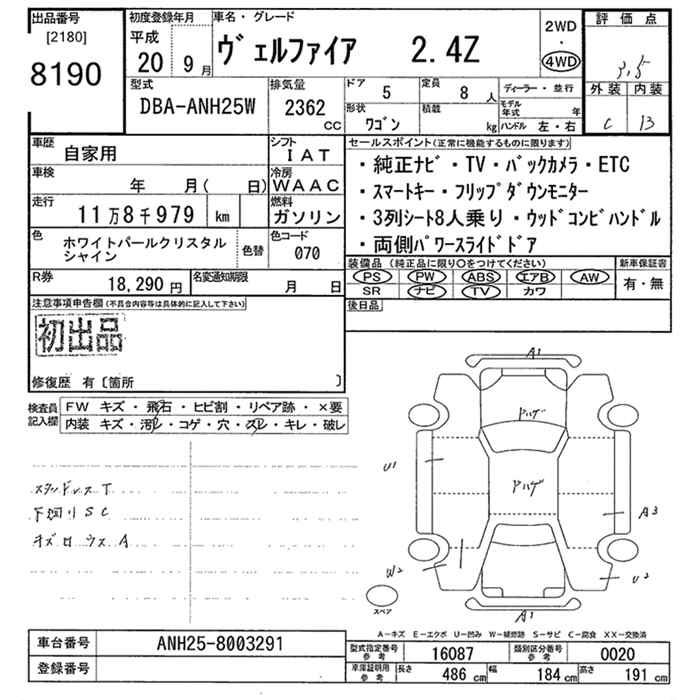 出品番号
[2180]
8190
初度登録年月
平成
20 9月
車名・グレード
ヴェルファイア 2.4Z
2WD
・
4WD
評価点
3.5
外装 内装
C B
型式
DBA-ANH25W
排気量
2362
CC
ドア 5
定員 8人
形状 ワゴン
積載 kg
ディーラー・並行
モデル年式 年
ハンドル 左・右
車歴 自家用
シフト IAT
車検 年 月( 日)
冷房 WAAC
走行 11万8千979 km
燃料 ガソリン
色 ホワイトパールクリスタル
シャイン
色替
色コード 070
R券 18,290円
名変通知期限 月 日
セールスポイント(正常に機能するものに限ります)
・純正ナビ・TV・バックカメラ・ETC
・スマートキー・フリップダウンモニター
・3列シート8人乗り・ウッドコンビハンドル
・両側パワースライドドア
装備品(純正品に限り○をつけてください)
PS PW ABS エアB AW
SR ナビ TV カワ
新車保証書
有・無
後日品
注意事項申告欄(不具合内容等は具体的に記入して下さい)
初出品
修復歴 有〔箇所 〕
検査員記入欄
FW キズ・飛石・ヒビ割・リペア跡・×要
内装 キズ・汚レ・コゲ・穴・スレ・キレ・破レ
下回りSC
A1
ドハゲ
ドハゲ
U1
A3
W2
U2
スペア
A1
A-キズ E-エクボ U-凹み W-補修跡 S-サビ C-腐食 XX-交換済
車台番号 ANH25-8003291
登録番号
型式指定番号参考 16087
類別区分番号参考 0020
車庫証明用参考
長さ 486 cm
幅 184 cm
高さ 191 cm